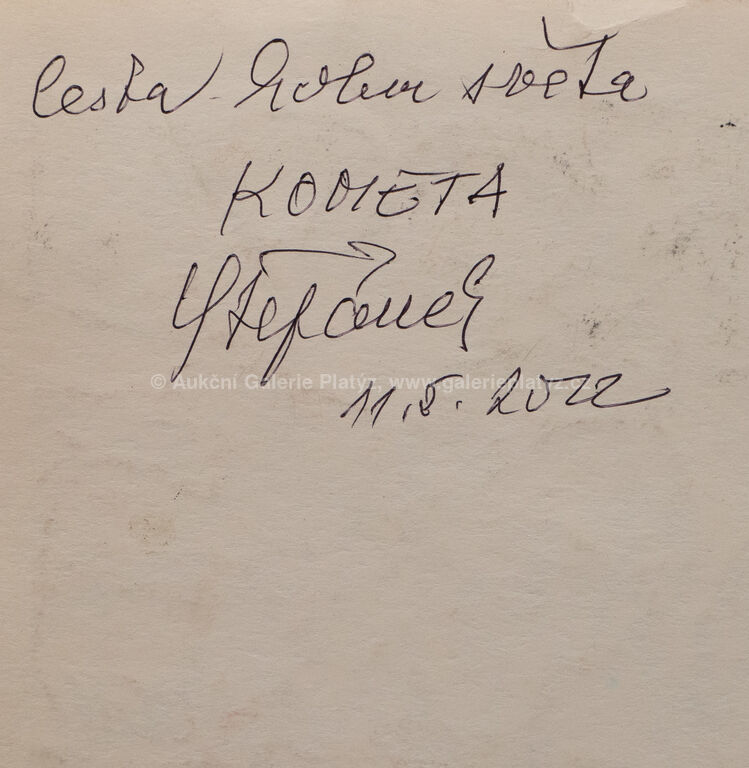 Cesta kolem světa
KOMETA
Štěpánek
© Aukční Galerie Platýz, www.galerieplatyz.cz
11.5.2022